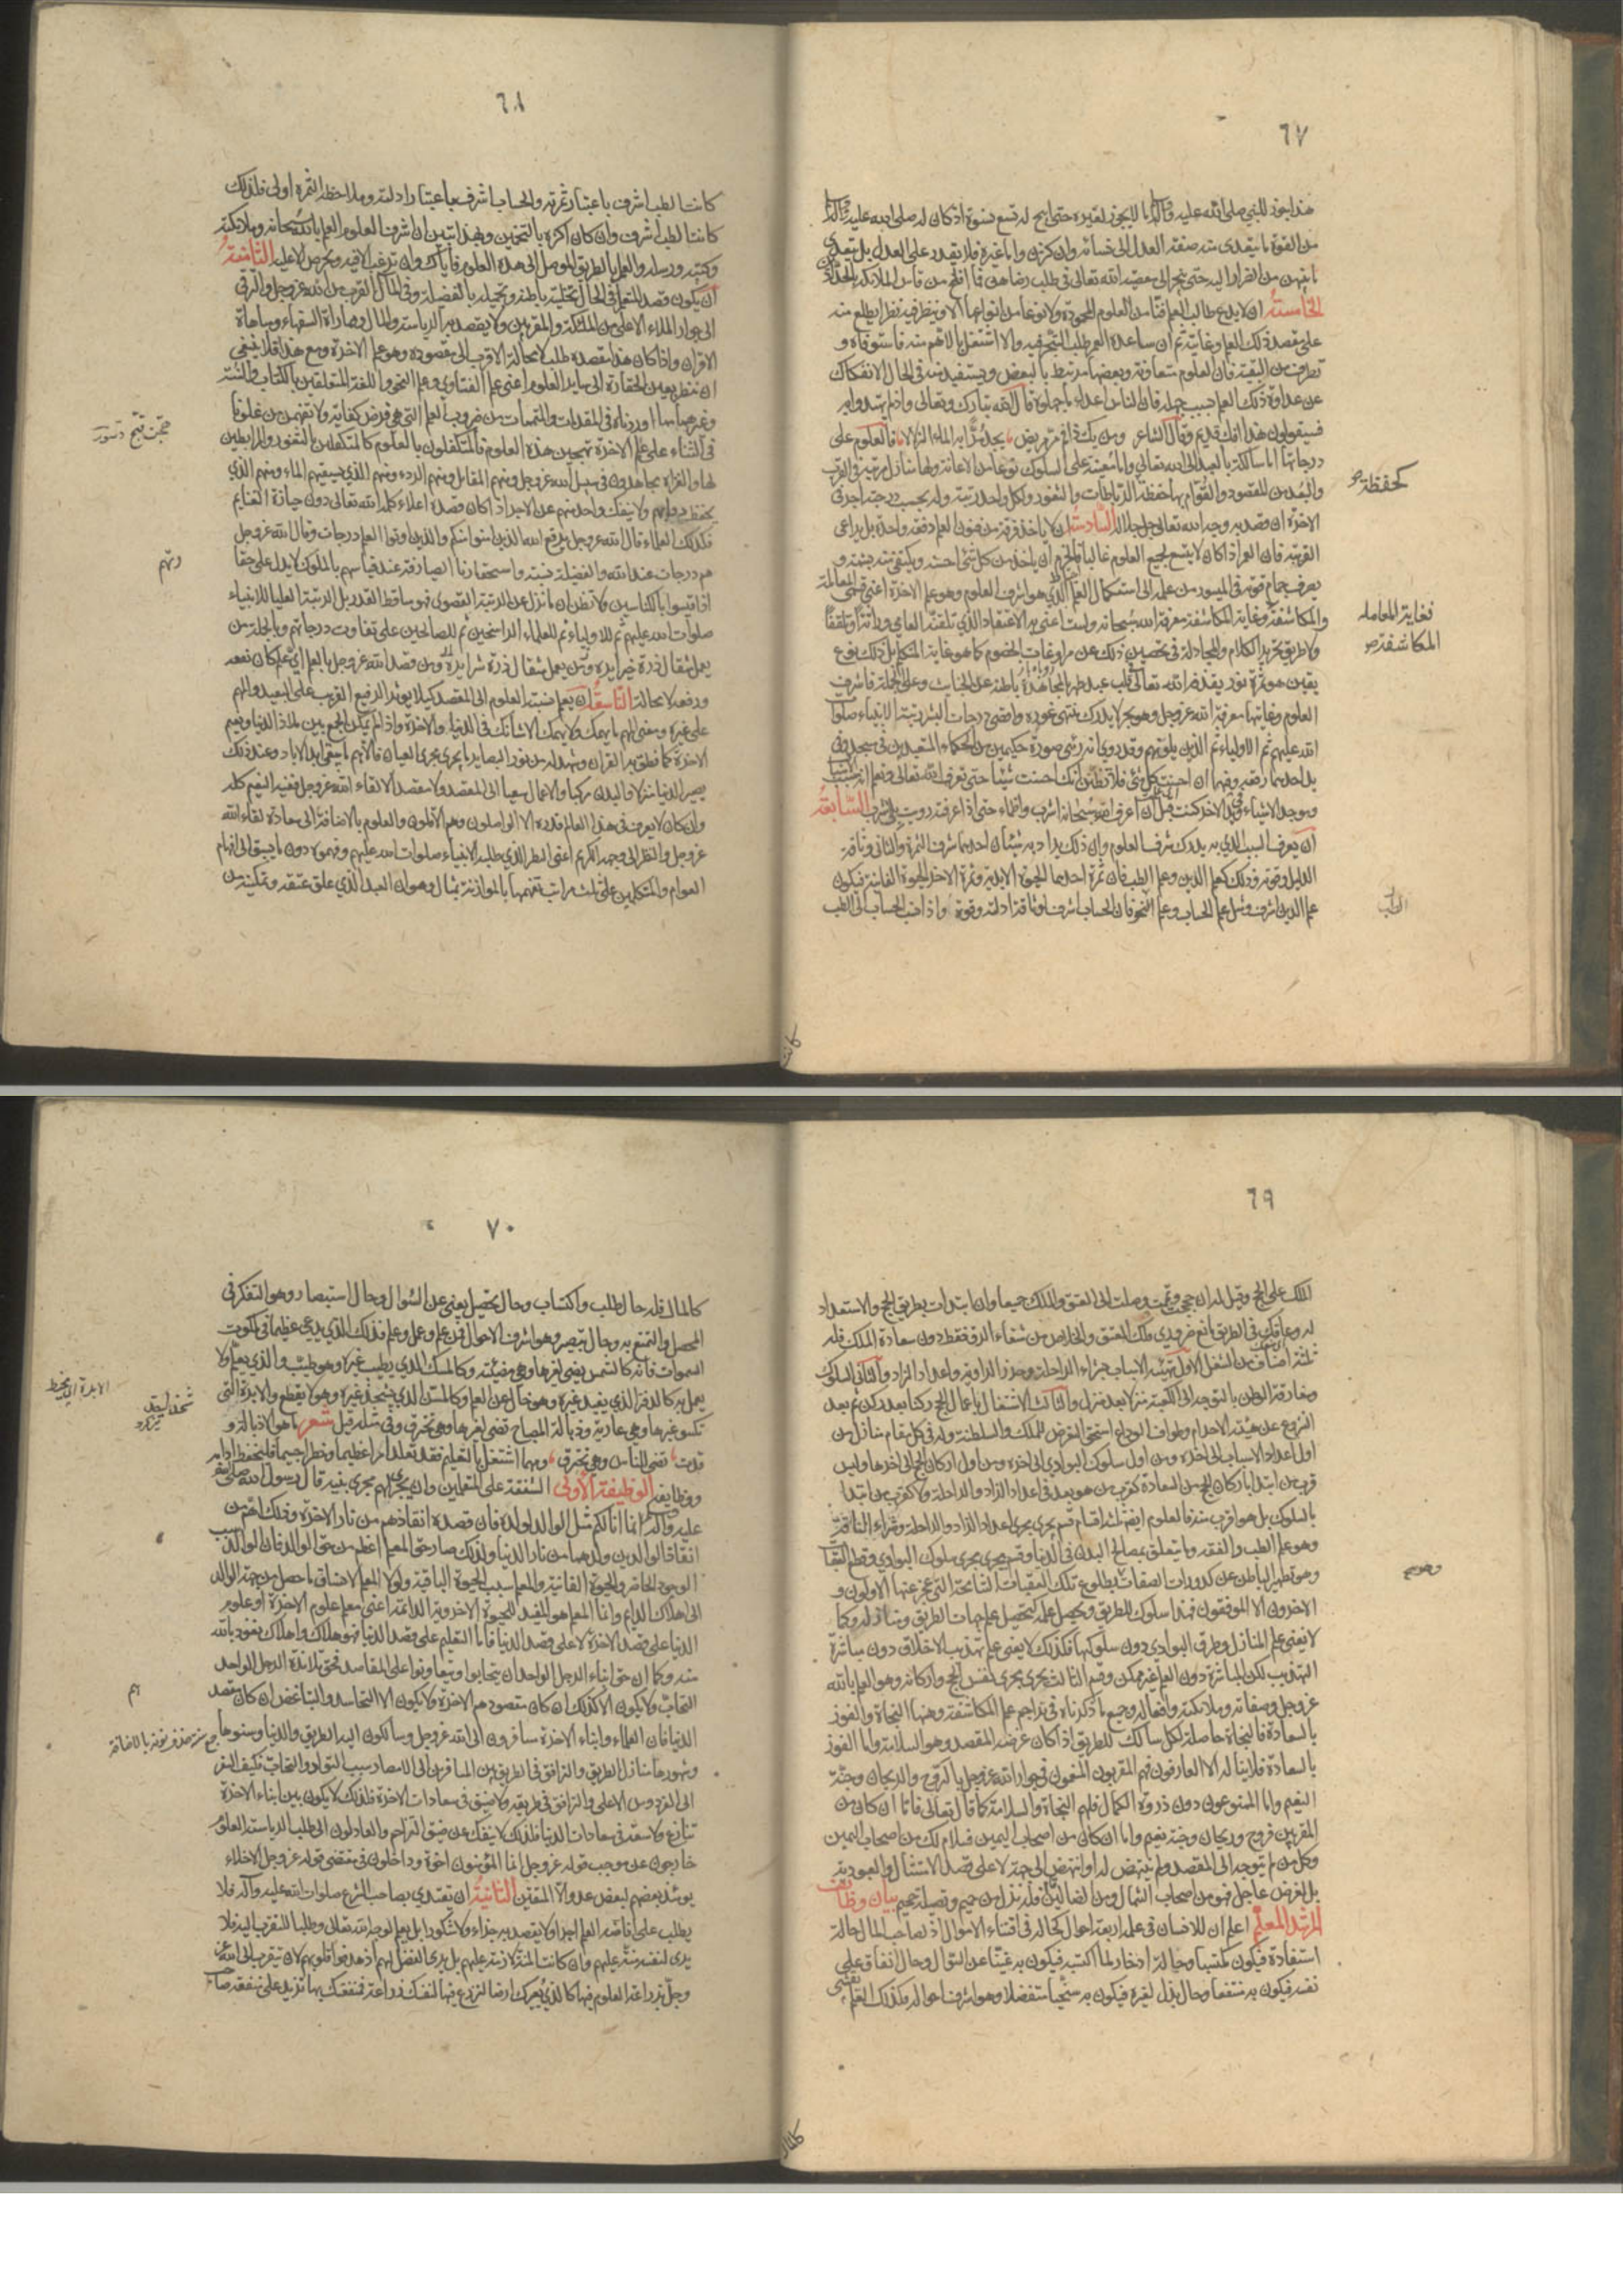 ٦٧
هذا يجوز للنبي صلى الله عليه وآله ما لا يجوز لغيره حتى ابيح له تسع نسوة اذ كان له صلى الله عليه وآله
من القوة ما يتعدى منه صفة العدل الى نسائه وان كثرن واما غيره فلا يقدر على العدل بل يتعدى
ما بينهن من الضرار اليه حتى ينجر الى معصية الله تعالى في طلب رضاهن فما افلح من قاس الملائكة بالحدادين
الخامسة ان لا يدع طالب العلم فنا من العلوم المحمودة ولا نوعا من انواعها الا وينظر فيه نظرا يطلع منه
على مقصد ذلك العلم وغايته ثم ان ساعده العمر طلب التبحر فيه والا اشتغل بالاهم منه فاستوفاه و
تطرف من البقية فان العلوم متعاونة وبعضها مرتبط بالبعض ويستفيد منه في الحال الانفكاك
عن عداوة ذلك العلم بسبب جهله فان الناس اعداء ما جهلوه قال الله تبارك وتعالى واذ لم يهتدوا به
فسيقولون هذا افك قديم وقال الشاعر ومن يك ذا فم مر مريض يجد مرا به الماء الزلالا فالعلوم على
درجاتها اما سالكة بالعبد الى الله تعالى واما معينة على السلوك نوعا من الاعانة ولها منازل مرتبة في القرب
والبعد من المقصود والقوام بها حفظة الرباطات والثغور ولكل واحد رتبة وله بحسب درجته اجر في
الاخرة ان قصد به وجه الله تعالى جل جلاله السادسة ان لا ياخذ في فن من فنون العلم دفعة واحدة بل يراعي
الترتيب فان العمر اذا كان لا يتسع لجميع العلوم غالبا فالحزم ان ياخذ من كل شيء احسنه ويكتفي منه بشمة و
يصرف جمام قوته في الميسور من علمه الى استكمال العلم الذي هو اشرف العلوم وهو علم الاخرة اعني قسمي المعاملة
والمكاشفة وغاية المكاشفة معرفة الله سبحانه ولست اعني به الاعتقاد الذي تلقنه العامي وراثة او تلقفا
ولا طريق تحرير الكلام والمجادلة في تحصين ذلك عن مراوغات الخصوم كما هو غاية المتكلم بل ذلك نوع
يقين هو ثمرة نور يقذفه الله تعالى في قلب عبد طهر بالمجاهدة باطنه عن الخبائث وعلى الجملة فاشرف
العلوم وغايتها معرفة الله عز وجل وهو بحر لا يدرك منتهى غوره واقصى درجات البشر رتبة الانبياء صلوات
الله عليهم ثم الاولياء ثم الذين يلونهم وقد روي انه رئي صورة حكيمين من الحكماء المتعبدين في مسجد وفي
يد احدهما رقعة وفيها ان احسنت كل شيء فلا تظنن انك احسنت شيئا حتى تعرف الله تعالى وتعلم انه مسبب الاسباب
وموجد الاشياء وفي يد الاخر كنت قبل ان اعرف الله سبحانه اشرب واظماء حتى اذا عرفته رويت بلا شرب السابعة
ان يعرف السبب الذي به يدرك شرف العلوم وان ذلك يراد به شيئان احدهما شرف الثمرة والثاني وثاقة
الدليل وقوته وذلك كعلم الدين وعلم الطب فان ثمرة احدهما الحيوة الابدية وثمرة الاخر الحيوة الفانية فيكون
علم الدين اشرف ومثل علم الحساب وعلم النجوم فان الحساب اشرف لوثاقة ادلته وقوته واذا نسب الحساب الى الطب
كحفظة
فغاية المعامله
المكاشفة
كانت
٦٨
كانت الطب اشرف باعتبار ثمرته والحساب اشرف باعتبار ادلته وملاحظة الثمرة اولى فلذلك
كانت الطب اشرف وان كان اكثره بالتخمين وبهذا تبين ان اشرف العلوم العلم بالله سبحانه وملائكته
وكتبه ورسله والعلم بالطريق الموصل الى هذه العلوم فاياك وان ترغب الا فيه وتحرص الا عليه الثامنة
ان يكون قصد المتعلم في الحال تحلية باطنه وتجميله بالفضيلة وفي المآل القرب من الله عز وجل والترقي
الى جوار الملاء الاعلى من الملئكة والمقربين ولا يقصد به الرياسة والمال ومماراة السفهاء ومباهاة
الاقران واذا كان هذا مقصده طلب لا محالة الاقرب الى مقصوده وهو علم الاخرة ومع هذا فلا ينبغي
ان ينظر بعين الحقارة الى ساير العلوم اعني علم الفتاوي وعلم النحو واللغة المتعلقين بالكتاب والسنة
وغير هما مما اوردناه في المقدمات والمتممات من ضروب العلم التي هي فرض كفاية ولا تفهمن من غلونا
في الثناء على علم الاخرة تهجين هذه العلوم فالمتكفلون بالعلوم كالمتكفلين بالثغور والمرابطين
لها والغزاة يجاهدون في سبيل الله عز وجل ومنهم المقاتل ومنهم الردء ومنهم الذي يسقيهم الماء ومنهم الذي
يحفظ دوابهم ولا ينفك واحد منهم عن الاجر اذا كان قصده اعلاء كلمة الله تعالى دون حيازة الغنايم
فكذلك العلماء قال الله عز وجل يرفع الله الذين امنوا منكم والذين اوتوا العلم درجات وقال الله عز وجل
هم درجات عند الله والفضيلة نسبية واستحقارنا الصيارفة عند قياسهم بالملوك لا يدل على حقارتهم
اذا قيسوا بالكناسين ولا تظن ان ما نزل عن الرتبة القصوى فهو ساقط القدر بل الرتبة العليا للانبياء
صلوات الله عليهم ثم للاولياء ثم للعلماء الراسخين ثم للصالحين على تفاوت درجاتهم وبالجملة من
يعمل مثقال ذرة خيرا يره ومن يعمل مثقال ذرة شرا يره ومن قصد الله عز وجل بالعلم اي علم كان نفعه
ورفعه لا محالة التاسعة ان يعلم نسبة العلوم الى المقصد كيلا يؤثر الرفيع القريب على البعيد والمهم
على غيره ومعنى المهم ما يهمك ولا يهمك الا شانك في الدنيا والاخرة واذا لم يمكن الجمع بين ملاذ الدنيا ونعيم
الاخرة كما نطق به القران وشهد له من نور البصاير ما يجري مجرى العيان فالاهم ما يبقى ابد الاباد وعند ذلك
يصير الدنيا منزلا والبدن مركبا والاعمال سعيا الى المقصد ولا مقصد الا لقاء الله عز وجل ففيه النعيم كله
وان كان لا يعرف في هذا العالم قدره الا الواصلون وهم الاقلون والعلوم بالاضافة الى سعادة لقاء الله
عز وجل والنظر الى وجهه الكريم اعني النظر الذي طلبه الانبياء صلوات الله عليهم وفهموه دون ما يسبق الى افهام
العوام والمتكلمين على ثلث مراتب تفهمها بالموازنة بمثال وهو ان العبد الذي علق عتقه وتمكينه من
رتهم
٦٩
الملك على الحج وقيل له ان حججت وتممت وصلت الى العتق والملك جميعا وان ابتدات بطريق الحج والاستعداد
له وعاقك في الطريق مانع ضروري فلك العتق والخلاص من شقاء الرق فقط دون سعادة الملك فله
ثلثة اصناف من الشغل الاول تهيئة الاسباب بشراء الراحلة وخرز الراوية واعداد الزاد والثاني السلوك
ومفارقة الوطن بالتوجه الى الكعبة منزلا بعد منزل والثالث الاشتغال باعمال الحج ركنا بعد ركن ثم بعد
النزوع عن هيئة الاحرام وطواف الوداع استحق التعرض للملك والسلطنة وله في كل مقام منازل من
اول اعداد الاسباب الى اخره ومن اول سلوك البوادي الى اخره ومن اول اركان الحج الى اخرها وليس
قرب من ابتدا باركان الحج من السعادة كقرب من هو بعد في اعداد الزاد والراحلة ولا كقرب من ابتدا
بالسلوك بل هو اقرب منه فالعلوم ايضا ثلثة اقسام قسم يجري مجرى اعداد الزاد والراحلة وشراء الناقة
وهو علم الطب والفقه وما يتعلق بمصالح البدن في الدنيا وقسم يجري مجرى سلوك البوادي وقطع العقبات
وهو تطهير الباطن عن كدورات الصفات بطلوع تلك العقبات الشامخة التي عجز عنها الاولون و
الاخرون الا الموفقون فهذا سلوك الطريق وتحصيل علمه كتحصيل علم جهات الطريق ومنازله وكما
لا يغني علم المنازل وطرق البوادي دون سلوكها فكذلك لا يغني علم تهذيب الاخلاق دون مباشرة
التهذيب لكن المباشرة دون العلم غير ممكن وقسم الثالث يجري مجرى نفس الحج واركانه وهو العلم بالله
عز وجل وصفاته وملائكته وافعاله وجميع ما ذكرناه في تراجم علم المكاشفة وههنا النجاة والفوز
بالسعادة فالنجاة حاصلة لكل سالك للطريق اذا كان غرضه المقصد وهو السلامة واما الفوز
بالسعادة فلا يناله الا العارفون فهم المقربون المنعمون في جوار الله عز وجل بالروح والريحان وجنة
النعيم واما الممنوعون دون ذروة الكمال فلهم النجاة والسلامة كما قال تعالى فاما ان كان من
المقربين فروح وريحان وجنة نعيم واما ان كان من اصحاب اليمين فسلام لك من اصحاب اليمين
وكل من لم يتوجه الى المقصد ولم ينتهض له او انتهض الى جهته لا على قصد الامتثال والعبودية
بل لغرض عاجل فهو من اصحاب الشمال ومن الضالين فله نزل من حميم وتصلية جحيم بيان وظائف
المرشد المعلم اعلم ان للانسان في علمه اربعة احوال كحاله في اقتناء الاموال اذ لصاحب المال حالة
استفادة فيكون مكتسبا وحالة ادخار لما اكتسبه فيكون به غنيا عن السؤال وحال انفاق على
نفسه فيكون به منتفعا وحال بذل لغيره فيكون به سخيا متفضلا وهو اشرف احواله فكذلك العلم يقتنى
٧٠
كالمال فله حال طلب واكتساب وحال تحصيل يغني عن السؤال وحال استبصار وهو التفكر في
المحصل والتمتع به وحال تبصير وهو اشرف الاحوال فمن علم وعمل وعلم فذلك الذي يدعى عظيما في ملكوت
السموات فانه كالشمس يضئ لغيرها وهي مضيئة وكالمسك الذي يطيب غيره وهو طيب والذي يعلم ولا
يعمل به كالدفتر الذي يفيد غيره وهو خال عن العلم وكالمسن الذي يشحذ غيره وهو لا يقطع والابرة التي
تكسو غيرها وهي عارية وذبالة المصباح تضئ لغيرها وهي تحترق وفي مثله قيل شعر ما هو الا ذبالة و
قدت تضئ للناس وهي تحترق ومهما اشتغل بالتعليم فقد تقلد امرا عظيما وخطرا جسيما فليحفظ ادابه
ووظايفه الوظيفة الاولى الشفقة على المتعلمين وان يجريهم مجرى بنيه قال رسول الله صلى الله
عليه وآله انما انا لكم مثل الوالد لولده فان قصده انقاذهم من نار الاخرة وذلك اهم من
انقاذ الوالدين ولدهما من نار الدنيا ولذلك صار حق المعلم اعظم من حق الوالد فان الوالد سبب
الوجود الحاضر والحيوة الفانية والمعلم سبب الحيوة الباقية ولولا المعلم لانساق ما حصل من جهة الوالد
الى الهلاك الدايم وانما المعلم هو المفيد للحيوة الاخروية الدائمة اعني معلم علوم الاخرة او علوم
الدنيا على قصد الاخرة لا على قصد الدنيا فاما التعليم على قصد الدنيا فهو هلاك واهلاك نعوذ بالله
منه وكما ان حق ابناء الرجل الواحد ان يتحابوا ويتعاونوا على المقاصد فحق تلامذة الرجل الواحد
التحاب ولا يكون الا كذلك ان كان مقصودهم الاخرة ولا يكون الا التحاسد والتباغض ان كان مقصدهم
الدنيا فان العلماء وابناء الاخرة مسافرون الى الله عز وجل وسالكون اليه الطريق والدنيا وسنوها
وشهورها منازل الطريق والترافق في الطريق بين المسافرين الى الامصار سبب التواد والتحاب فكيف السفر
الى الفردوس الاعلى والترافق في طريقه ولا ضيق في سعادات الاخرة فلذلك لا يكون بين ابناء الاخرة
تنازع ولا سعة في سعادات الدنيا فلذلك لا ينفك عن ضيق التزاحم والعادلون الى طلب الرياسة بالعلوم
خارجون عن موجب قوله عز وجل انما المؤمنون اخوة وداخلون في مقتضى قوله عز وجل الاخلاء
يومئذ بعضهم لبعض عدو الا المتقين الثانية ان يقتدي بصاحب الشرع صلوات الله عليه وآله فلا
يطلب على افاضة العلم اجرا ولا يقصد به جزاء ولا شكورا بل يعلم لوجه الله تعالى وطلبا للتقرب اليه فلا
يرى لنفسه منة عليهم وان كانت المنة لازمة عليهم بل يرى الفضل لهم اذ هذبوا قلوبهم لان تتقرب الى الله عز
وجل بزراعة العلوم فيها كالذي يعيرك ارضا لتزرع فيها لنفسك زراعة فمنفعتك بها تزيد على منفعة صاحب
الابرة التي يخيط
هم